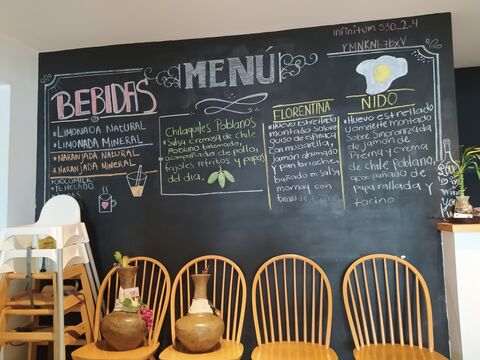 infinitum 530_2.4
YMNKN1-7bxV
MENÚ
BEBIDAS
*LIMONADA NATURAL
*LIMONADA MINERAL
*NARANJADA NATURAL
*NARANJADA MINERAL
*CHOCOMIL
*TE HELADO
Chilaquiles Poblanos
*Salsa crema de chile
Poblano tatemado,
acompañado de pollo,
frijoles refritos y papas
del día.
FLORENTINA
*Huevo estrellado
montado sobre
guiso de espinaca
con mozzarella,
jamón ahumado
y pan brioche
bañado en salsa
mornay con
trozos de tocino
NIDO
*Huevo estrellado
tiernamente montado
sobre sincronizada
de jamón de
Pierna y crema
de chile Poblano,
acompañado de
papa rallada y
tocino